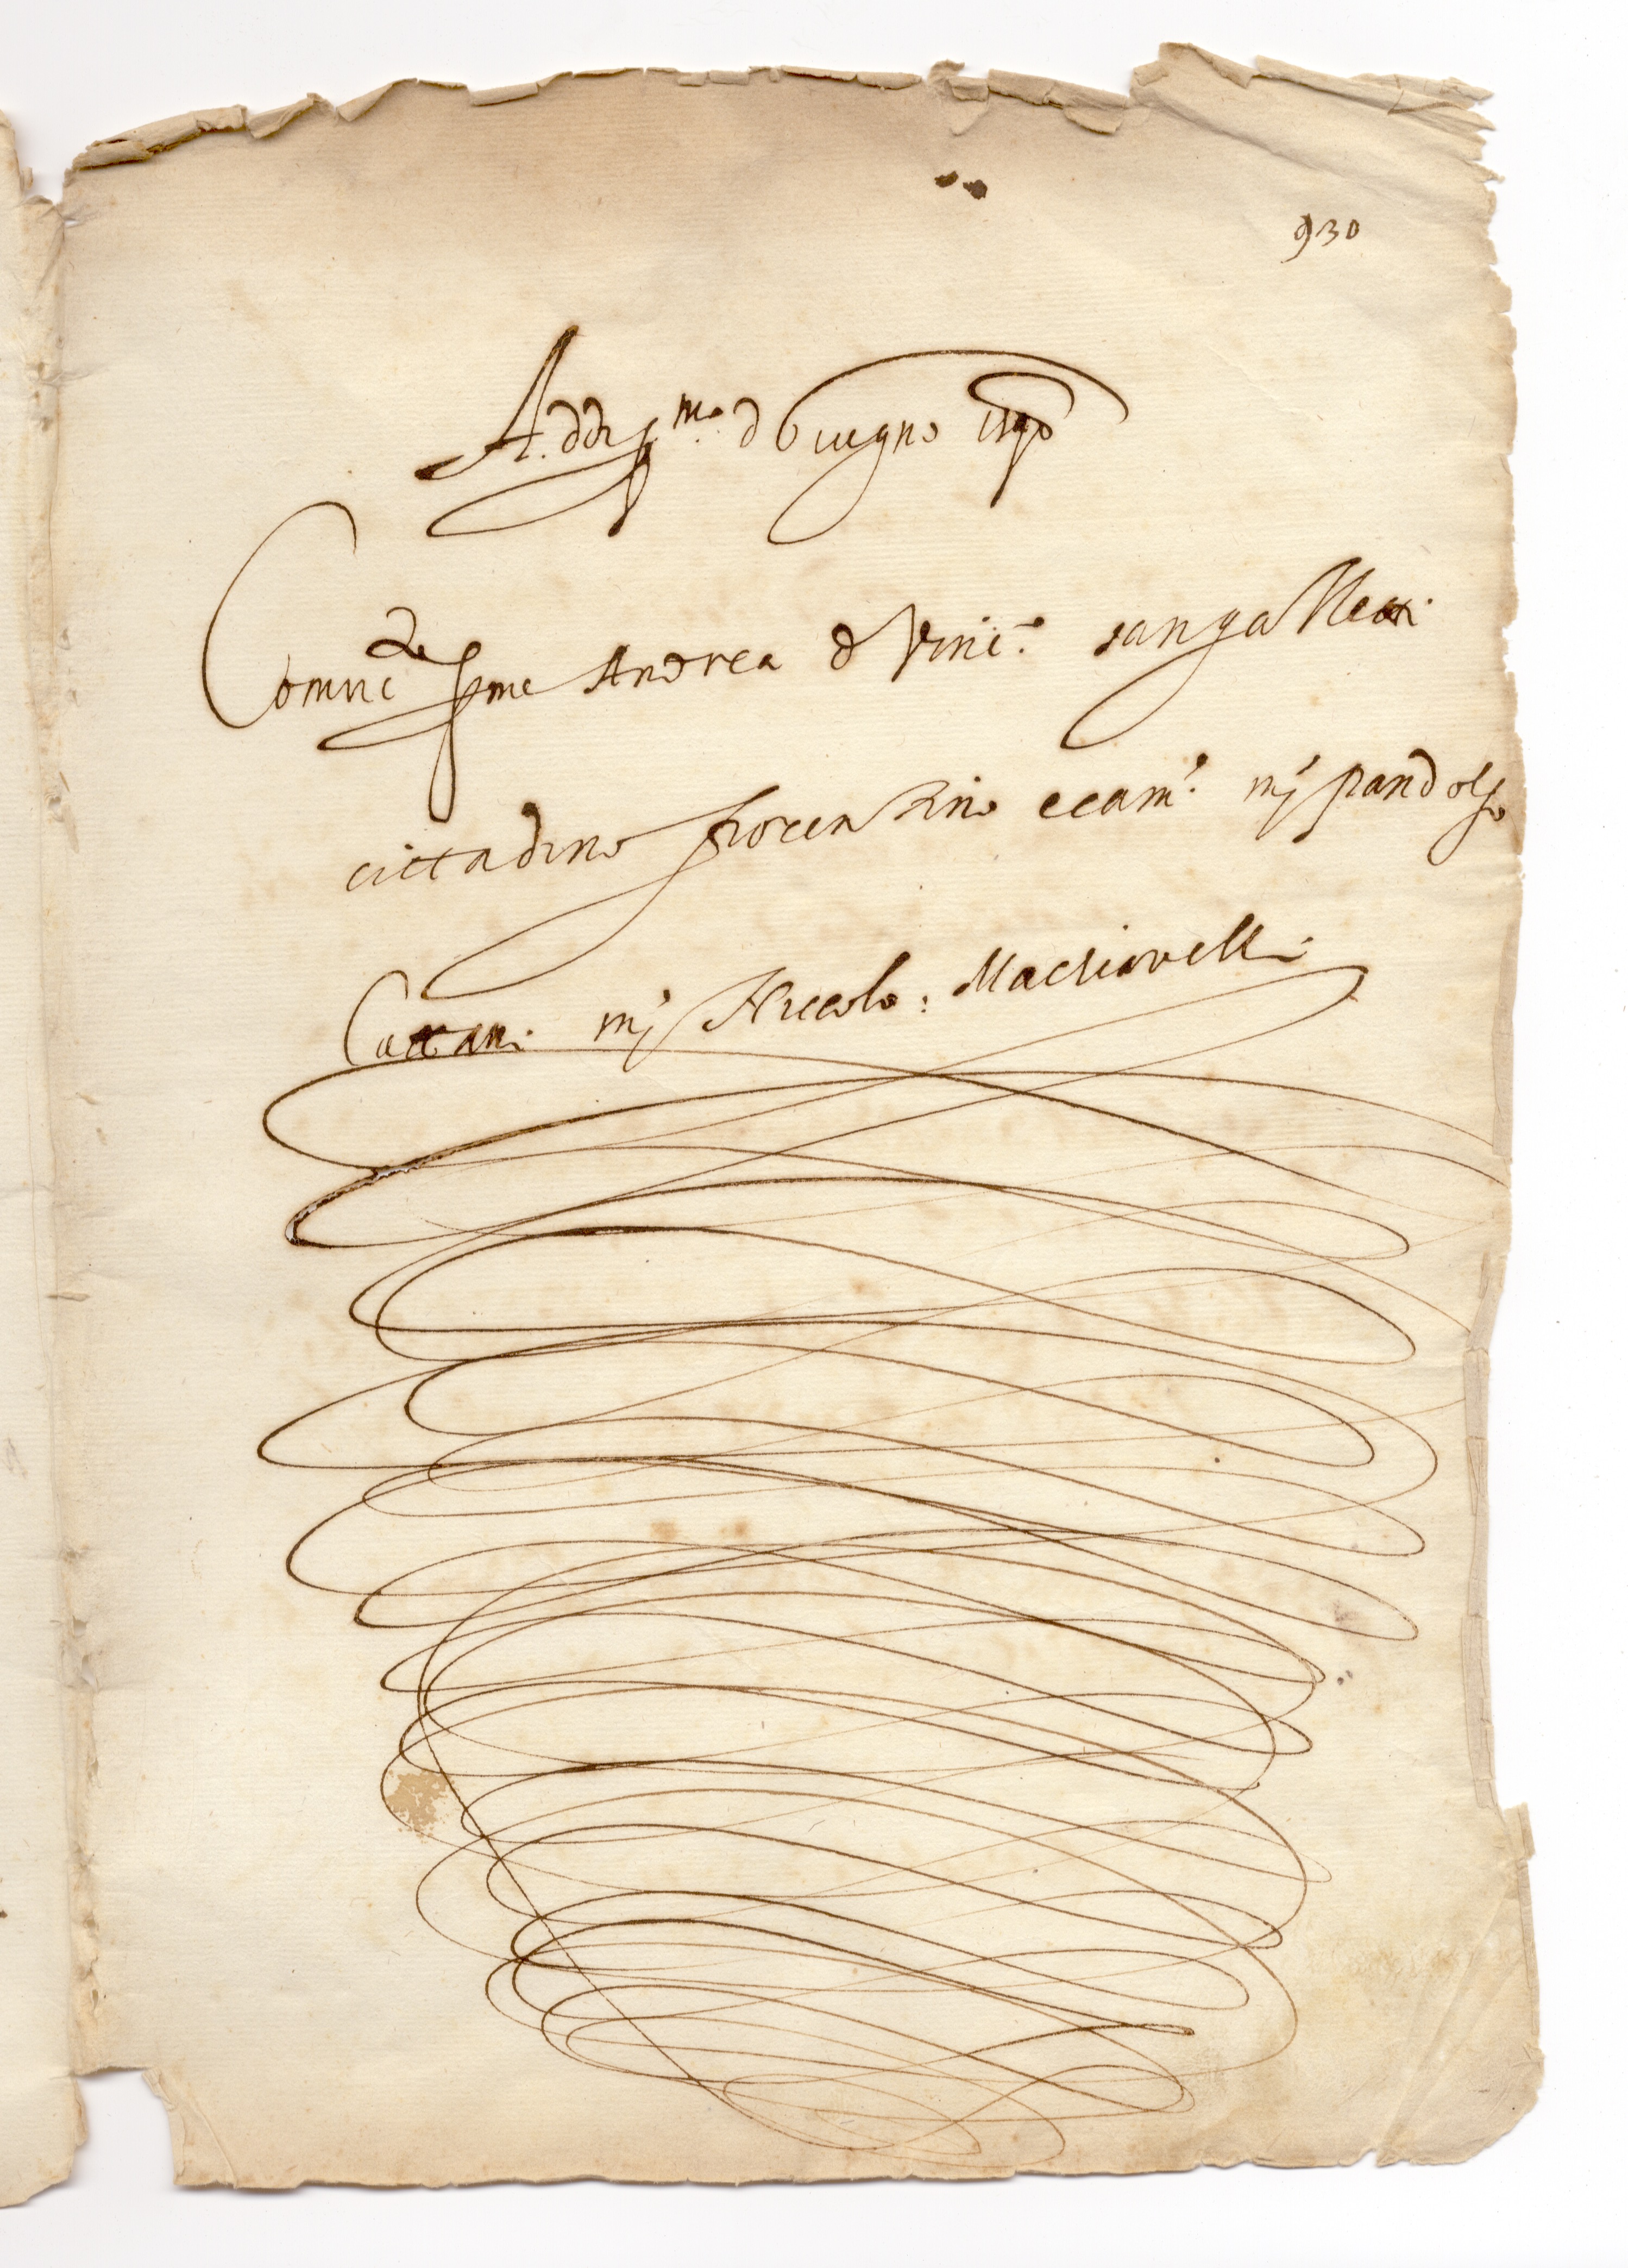 930
A. ddi p.mo d Giugno 1590
Comincia per me Andrea d Vinc.o sangalletti
cittadino fiorentino e cam.o mj pandolfo
Cattani mj Niccolo: Machiavelli